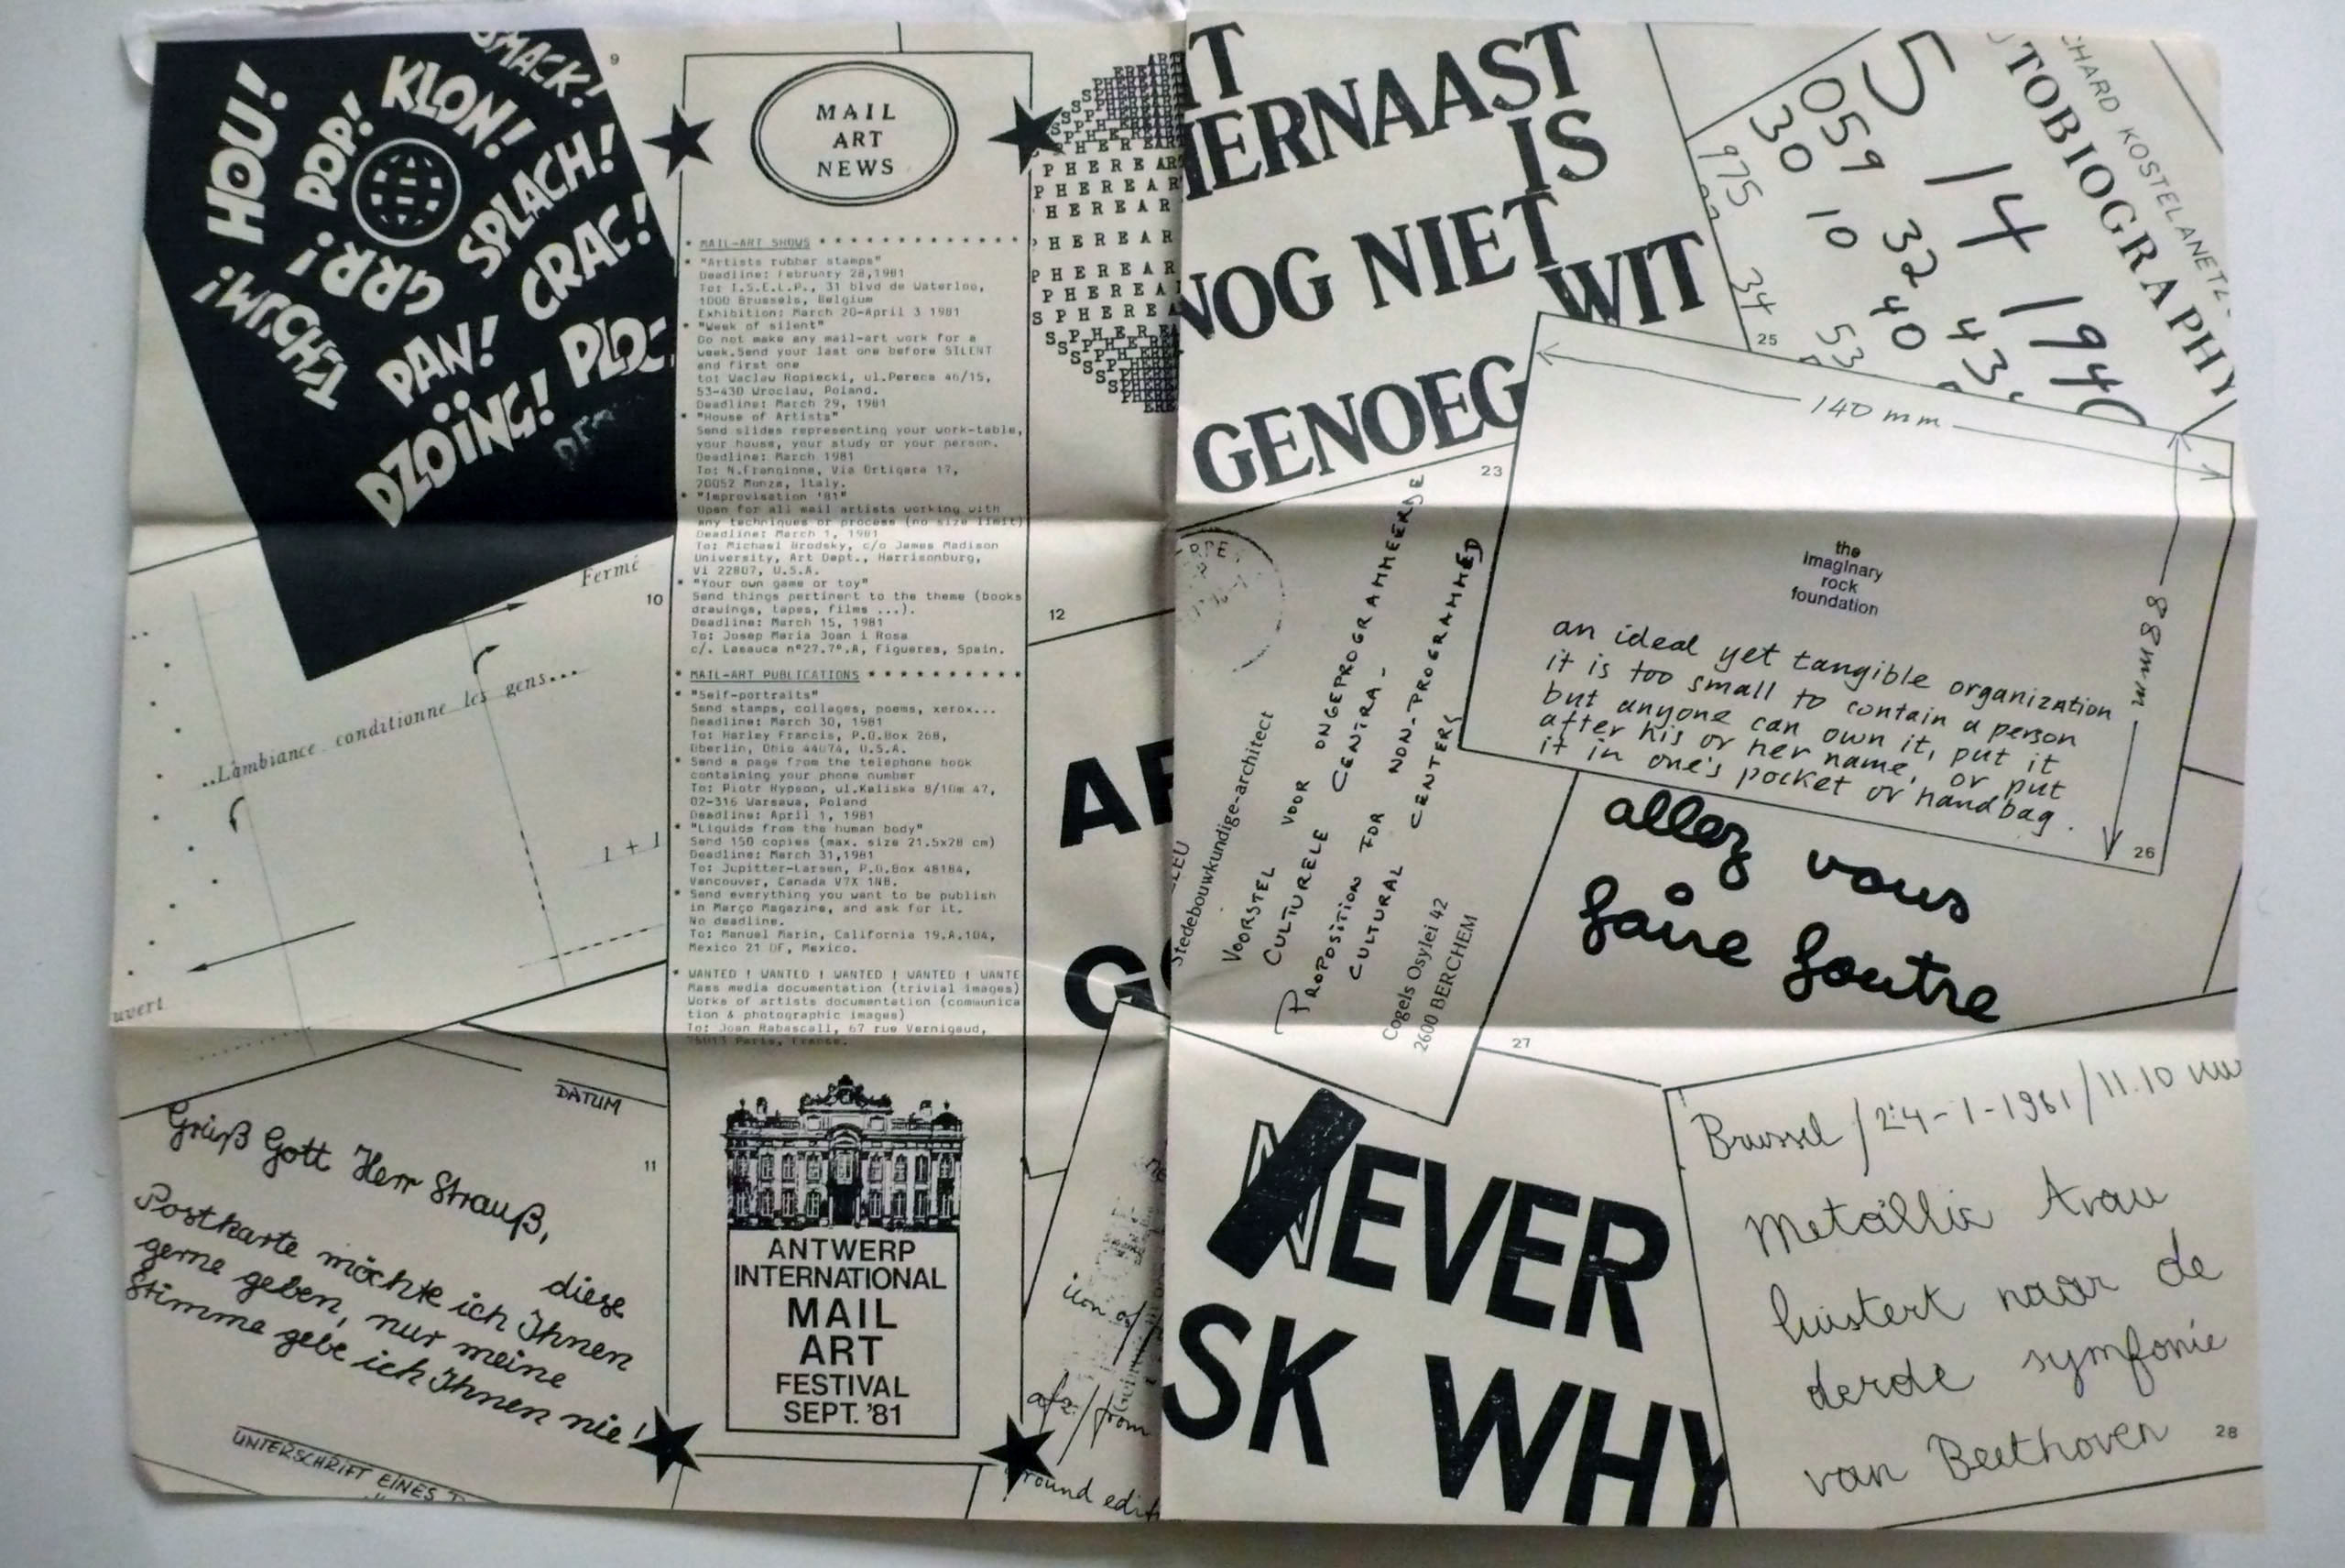 SMACK!
KLON!
HOU!
POP!
SPLACH!
GRR!
CRAC!
TCHOUM!
PAN!
DZOÏNG!
9
Fermé
10
..L'ambiance conditionne les gens...
1 + 1
uvert
DATUM
11
Grüß Gott Herr Strauß,
diese
Postkarte möchte ich Ihnen
gerne geben, nur meine
Stimme gebe ich Ihnen nie!
UNTERSCHRIFT EINES
MAIL
ART
NEWS
* MAIL-ART SHOWS * * * * * * * * * * * * *
* "Artists rubber stamps"
Deadline: February 28,1981
To: I.S.E.L.P., 31 blvd de Waterloo,
1000 Brussels, Belgium
Exhibition: March 20-April 3 1981
* "Week of silent"
Do not make any mail-art work for a
week.Send your last one before SILENT
and first one
to: Waclaw Ropiecki, ul.Pereca 46/15,
53-430 Wroclaw, Poland.
Deadline: March 29, 1981
* "House of Artists"
Send slides representing your work-table,
your house, your study or your person.
Deadline: March 1981
To: N.Frangione, Via Ortigara 17,
20052 Monza, Italy.
* "Improvisation '81"
Open for all mail artists working with
any techniques or process (no size limit)
Deadline: March 1, 1981
To: Michael Brodsky, c/o James Madison
University, Art Dept., Harrisonburg,
Vi 22807, U.S.A.
* "Your own game or toy"
Send things pertinent to the theme (books
drawings, tapes, films ...).
Deadline: March 15, 1981
To: Josep Maria Joan i Rosa
c/. Lasauca n°27.7°.A, Figueres, Spain.
* MAIL-ART PUBLICATIONS * * * * * * * * * *
* "Self-portraits"
Send stamps, collages, poems, xerox...
Deadline: March 30, 1981
To: Harley Francis, P.O.Box 268,
Oberlin, Ohio 44074, U.S.A.
* Send a page from the telephone book
containing your phone number
To: Piotr Rypson, ul.Kaliska 8/10m 47,
02-316 Warsawa, Poland
Deadline: April 1, 1981
* "Liquids from the human body"
Send 150 copies (max. size 21.5x28 cm)
Deadline: March 31,1981
To: Jupitter-Larsen, P.O.Box 48184,
Vancouver, Canada V7X 1N8.
* Send everything you want to be publish
in Março Magazine, and ask for it.
No deadline.
To: Manuel Marin, California 19.A.104,
Mexico 21 DF, Mexico.
* WANTED ! WANTED ! WANTED ! WANTED ! WANTE
Mass media documentation (trivial images)
Works of artists documentation (communica
tion & photographic images)
To: Joan Rabascall, 67 rue Vernigaud,
75013 Paris, France.
ANTWERP
INTERNATIONAL
MAIL
ART
FESTIVAL
SEPT. '81
PHEREAR
HEREAR
HEREAR
PHEREAR
PHEREAR
SPHEREA
12
icon of
from
round edit
IT
HIERNAAST
IS
NOG NIET
WIT
GENOEG
23
5
14
1940
059
32
43
30
10
40
975
34
53
25
TOBIOGRAPHY
CHARD KOSTELANETZ
140 mm
88 mm
the
imaginary
rock
foundation
an ideal yet tangible organization
it is too small to contain a person
but anyone can own it, put it
after his or her name, or put
it in one's pocket or handbag.
26
Stedebouwkundige-architect
VOORSTEL VOOR ONGEPROGRAMMEERDE
CULTURELE CENTRA -
PROPOSITION FOR NON-PROGRAMMED
CULTURAL CENTERS
Cogels Osylei 42
2600 BERCHEM
allez vous
faire foutre
27
NEVER
SK WHY
Brussel / 24-1-1981 / 11.10 uur
Metallic Avau
luistert naar de
derde symfonie
van Beethoven
28